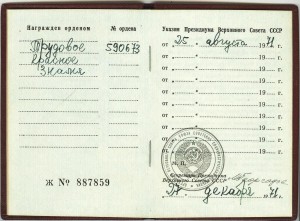 Награжден орденом № ордена
Трудовое 590673
Красное
Знамя
Ж № 887859
Указом Президиума Верховного Совета СССР
от „25„ августа 1971 г.
от „ „ 19 г.
от „ „ 19 г.
от „ „ 19 г.
от „ „ 19 г.
от „ „ 19 г.
от „ „ 19 г.
от „ „ 19 г.
М. П.
Секретарь Президиума
Верховного Совета СССР
„27„ декабря 1971 г.